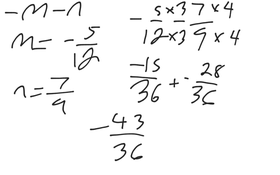 -m-n
m= -5/12
n=7/9
- 5x3/12x3 7x4/9x4
-15/36 + -28/36
-43/36